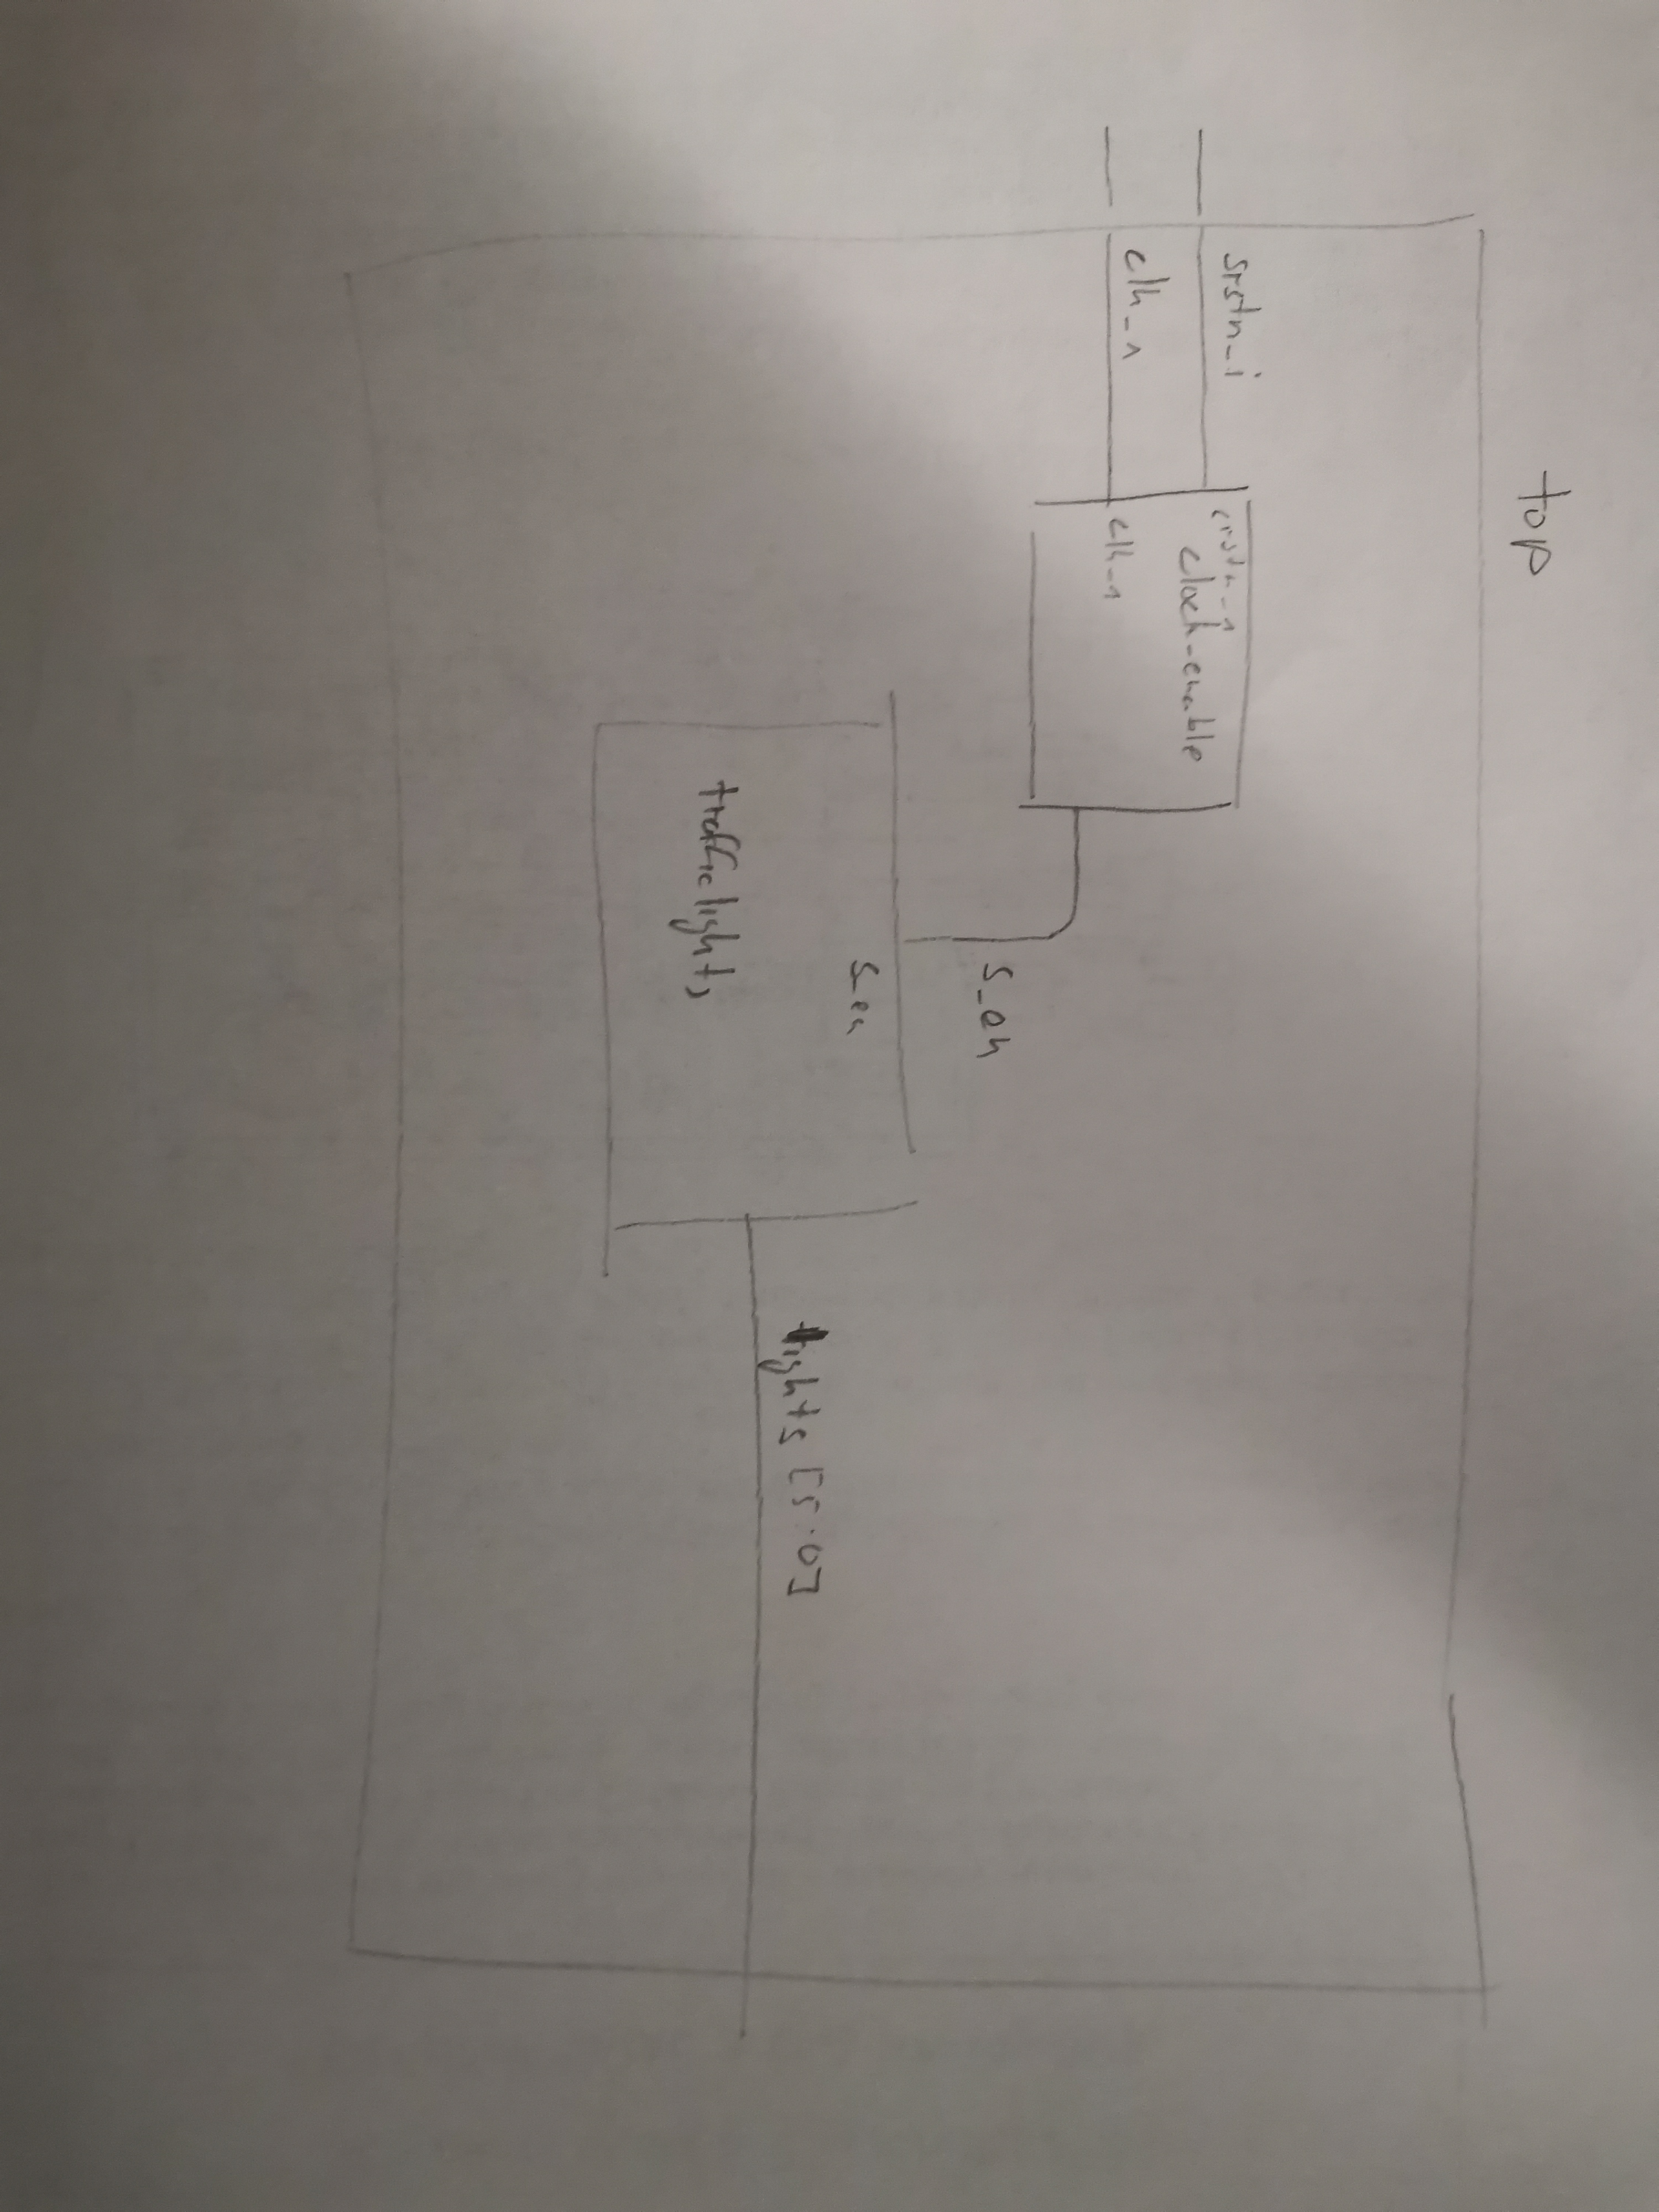 top
srstn_i
clk_i
srstn_i
clock_enable
clk_i
s_en
s_en
trafficlights
lights [5:0]